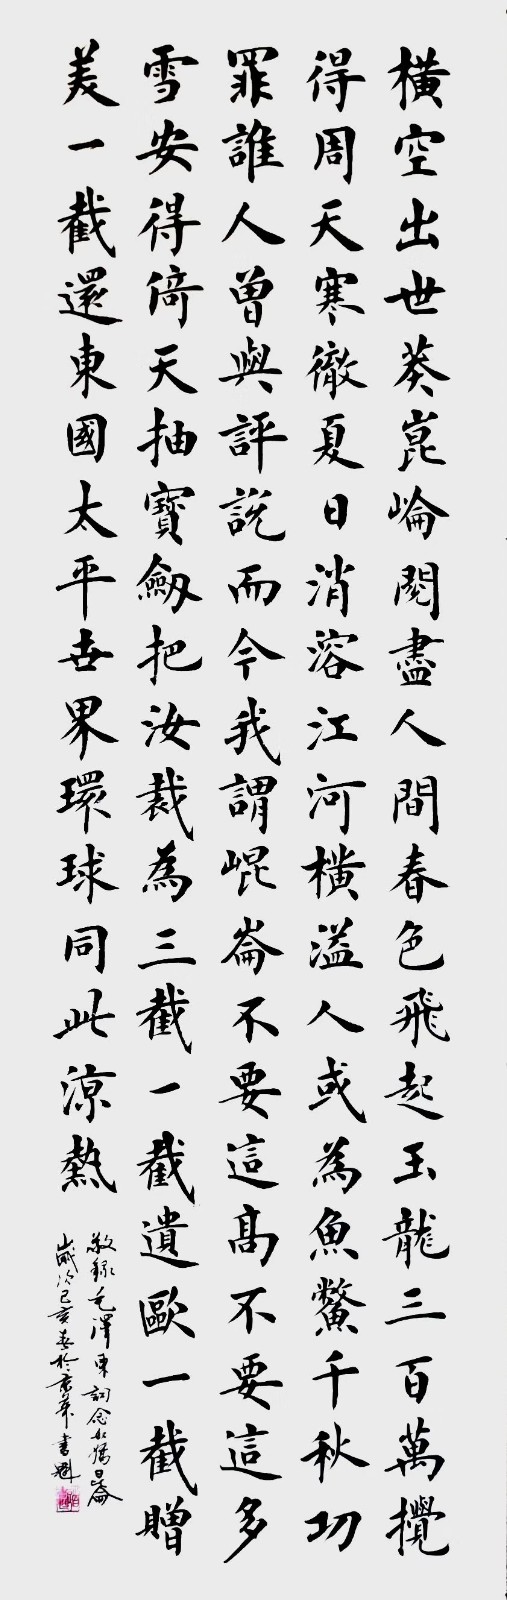 橫空出世莽崑崘閱盡人間春色飛起玉龍三百萬攪
得周天寒徹夏日消溶江河橫溢人或為魚鱉千秋功
罪誰人曾與評說而今我謂崐崙不要這高不要這多
雪安得倚天抽寶劔把汝裁為三截一截遺歐一截贈
美一截還東國太平世界環球同此涼熱
敬錄毛澤東詞念奴嬌崑崙
歲次己亥春於京華書